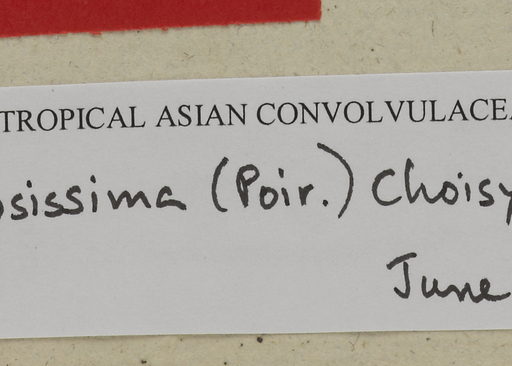 TROPICAL ASIAN CONVOLVULACEA
osissima (Poir.) Choisy
June